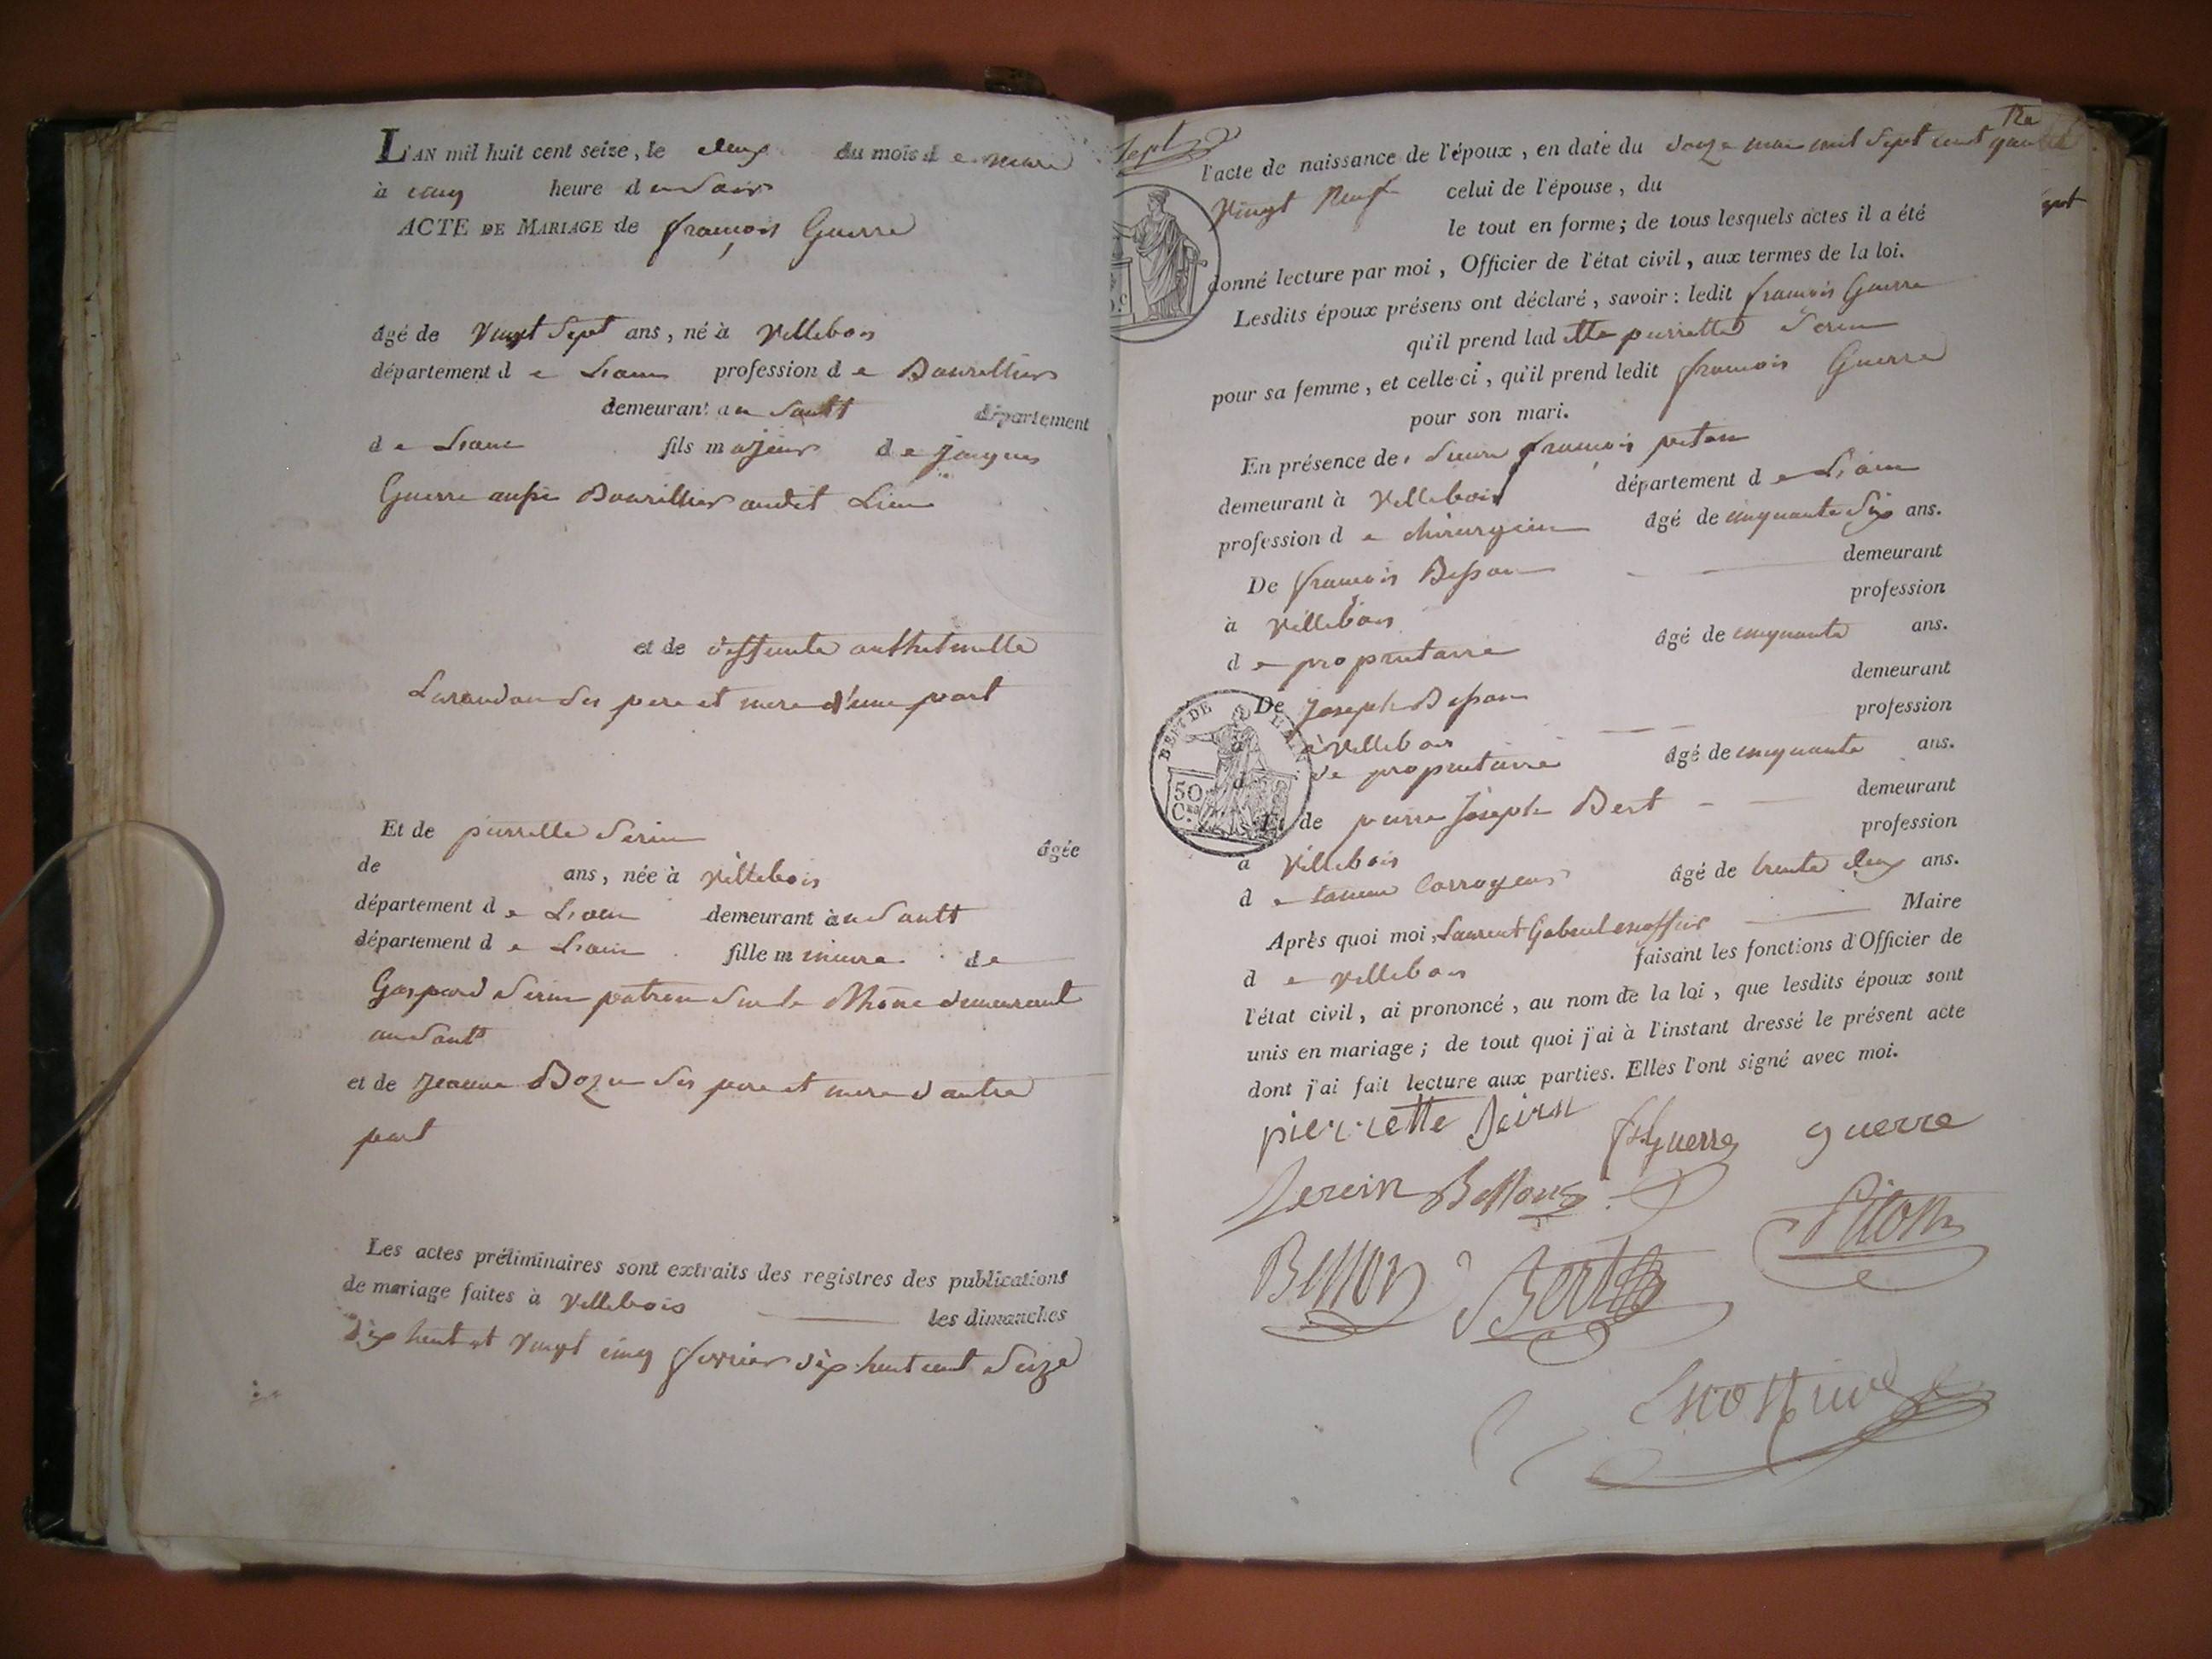 L'AN mil huit cent seize, le deux du mois de mars
à cinq heure du Soir
ACTE DE MARIAGE de françois Guerre
âgé de Vingt Sept ans, né à Villebois
département de Liain profession de Bourellier
demeurant au Sault département
de Liain fils majeur de jacques
Guerre aussi Bourillier audit Lieu
et de deffunte anthelmette
ses pere et mere d'une part
Et de pierrette Serin âgée
de ans, née à Villebois
département de Liain demeurant au Sault
département de Liain fille mineure de
Gaspard Serin patron Sur le Rhône demeurant
au Sault
et de Jeanne Bozu Ses pere et mere d'autre
part
Les actes préliminaires sont extraits des registres des publications
de mariage faites à Villebois les dimanches
dix huit et Vingt cinq fevrier dix huit cent Seize
Sept
l'acte de naissance de l'époux, en date du mai mil Sept cent quatre
Vingt Neuf celui de l'épouse, du
le tout en forme; de tous lesquels actes il a été
donné lecture par moi, Officier de l'état civil, aux termes de la loi.
Lesdits époux présens ont déclaré, savoir: ledit françois Guerre
qu'il prend ladette pierrette Serin
pour sa femme, et celle-ci, qu'il prend ledit françois Guerre
pour son mari.
En présence de Sieur françois piton
demeurant à Villebois département de Liain
profession de chirurgien âgé de cinquante Six ans.
De françois Besson demeurant
à Villebois profession
de propriétaire âgé de cinquante ans.
De Joseph Besson demeurant
à Villebois profession
de propriétaire âgé de cinquante ans.
Et de pierre Joseph Bert demeurant
à Villebois profession
de tanneur Corroyeur âgé de trente deux ans.
Après quoi moi, Laurent Gabriel Maire
de Villebois faisant les fonctions d'Officier de
l'état civil, ai prononcé, au nom de la loi, que lesdits époux sont
unis en mariage; de tout quoi j'ai à l'instant dressé le présent acte
dont j'ai fait lecture aux parties. Elles l'ont signé avec moi.
pierrette Seirn fs Guerre guerre
Serein Besson Piton
Besson Bert
50
C.